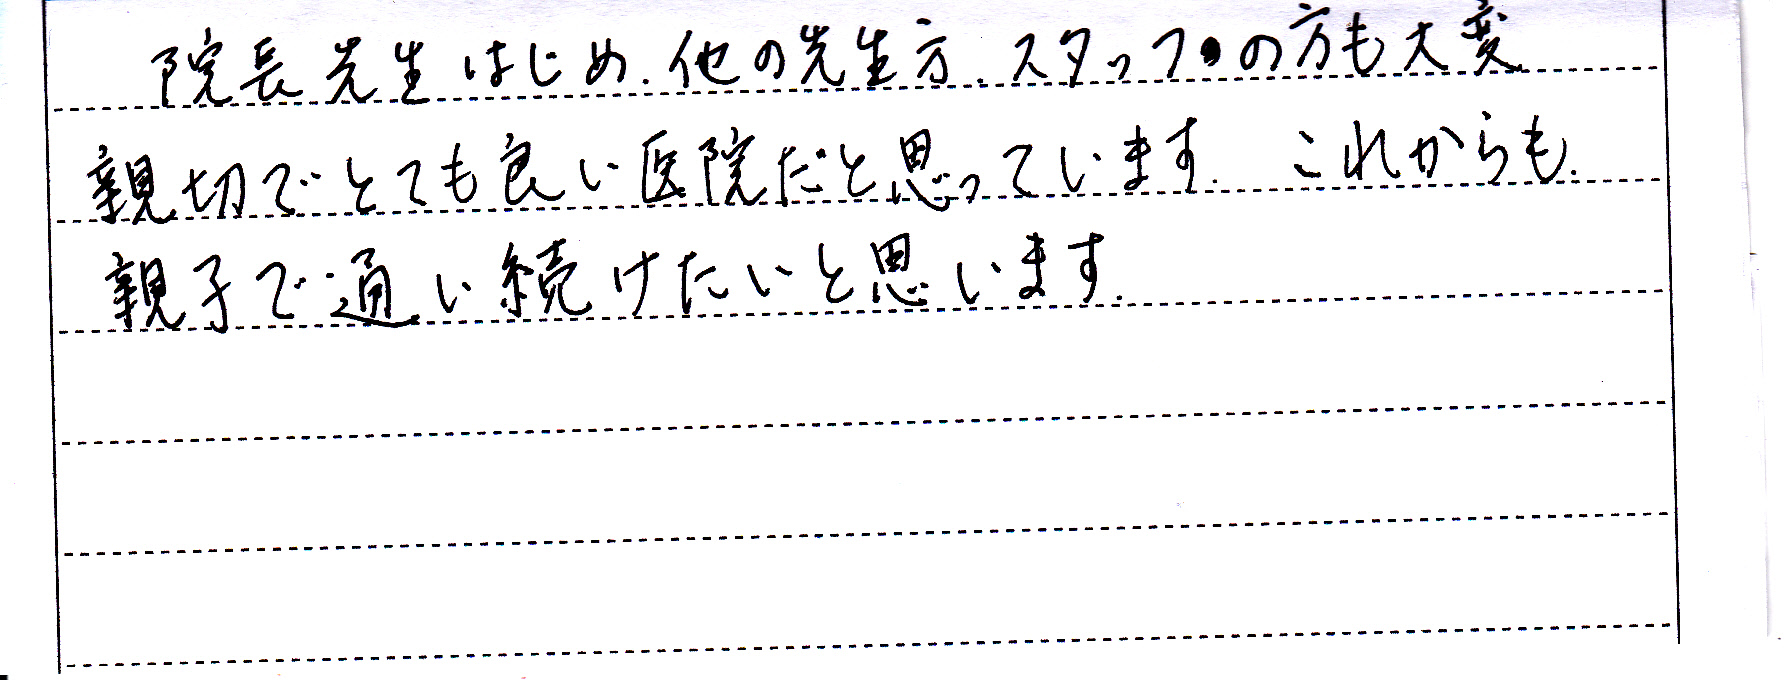 院長先生はじめ、他の先生方、スタッフの方も大変
親切でとても良い医院だと思っています。これからも、
親子で通い続けたいと思います。